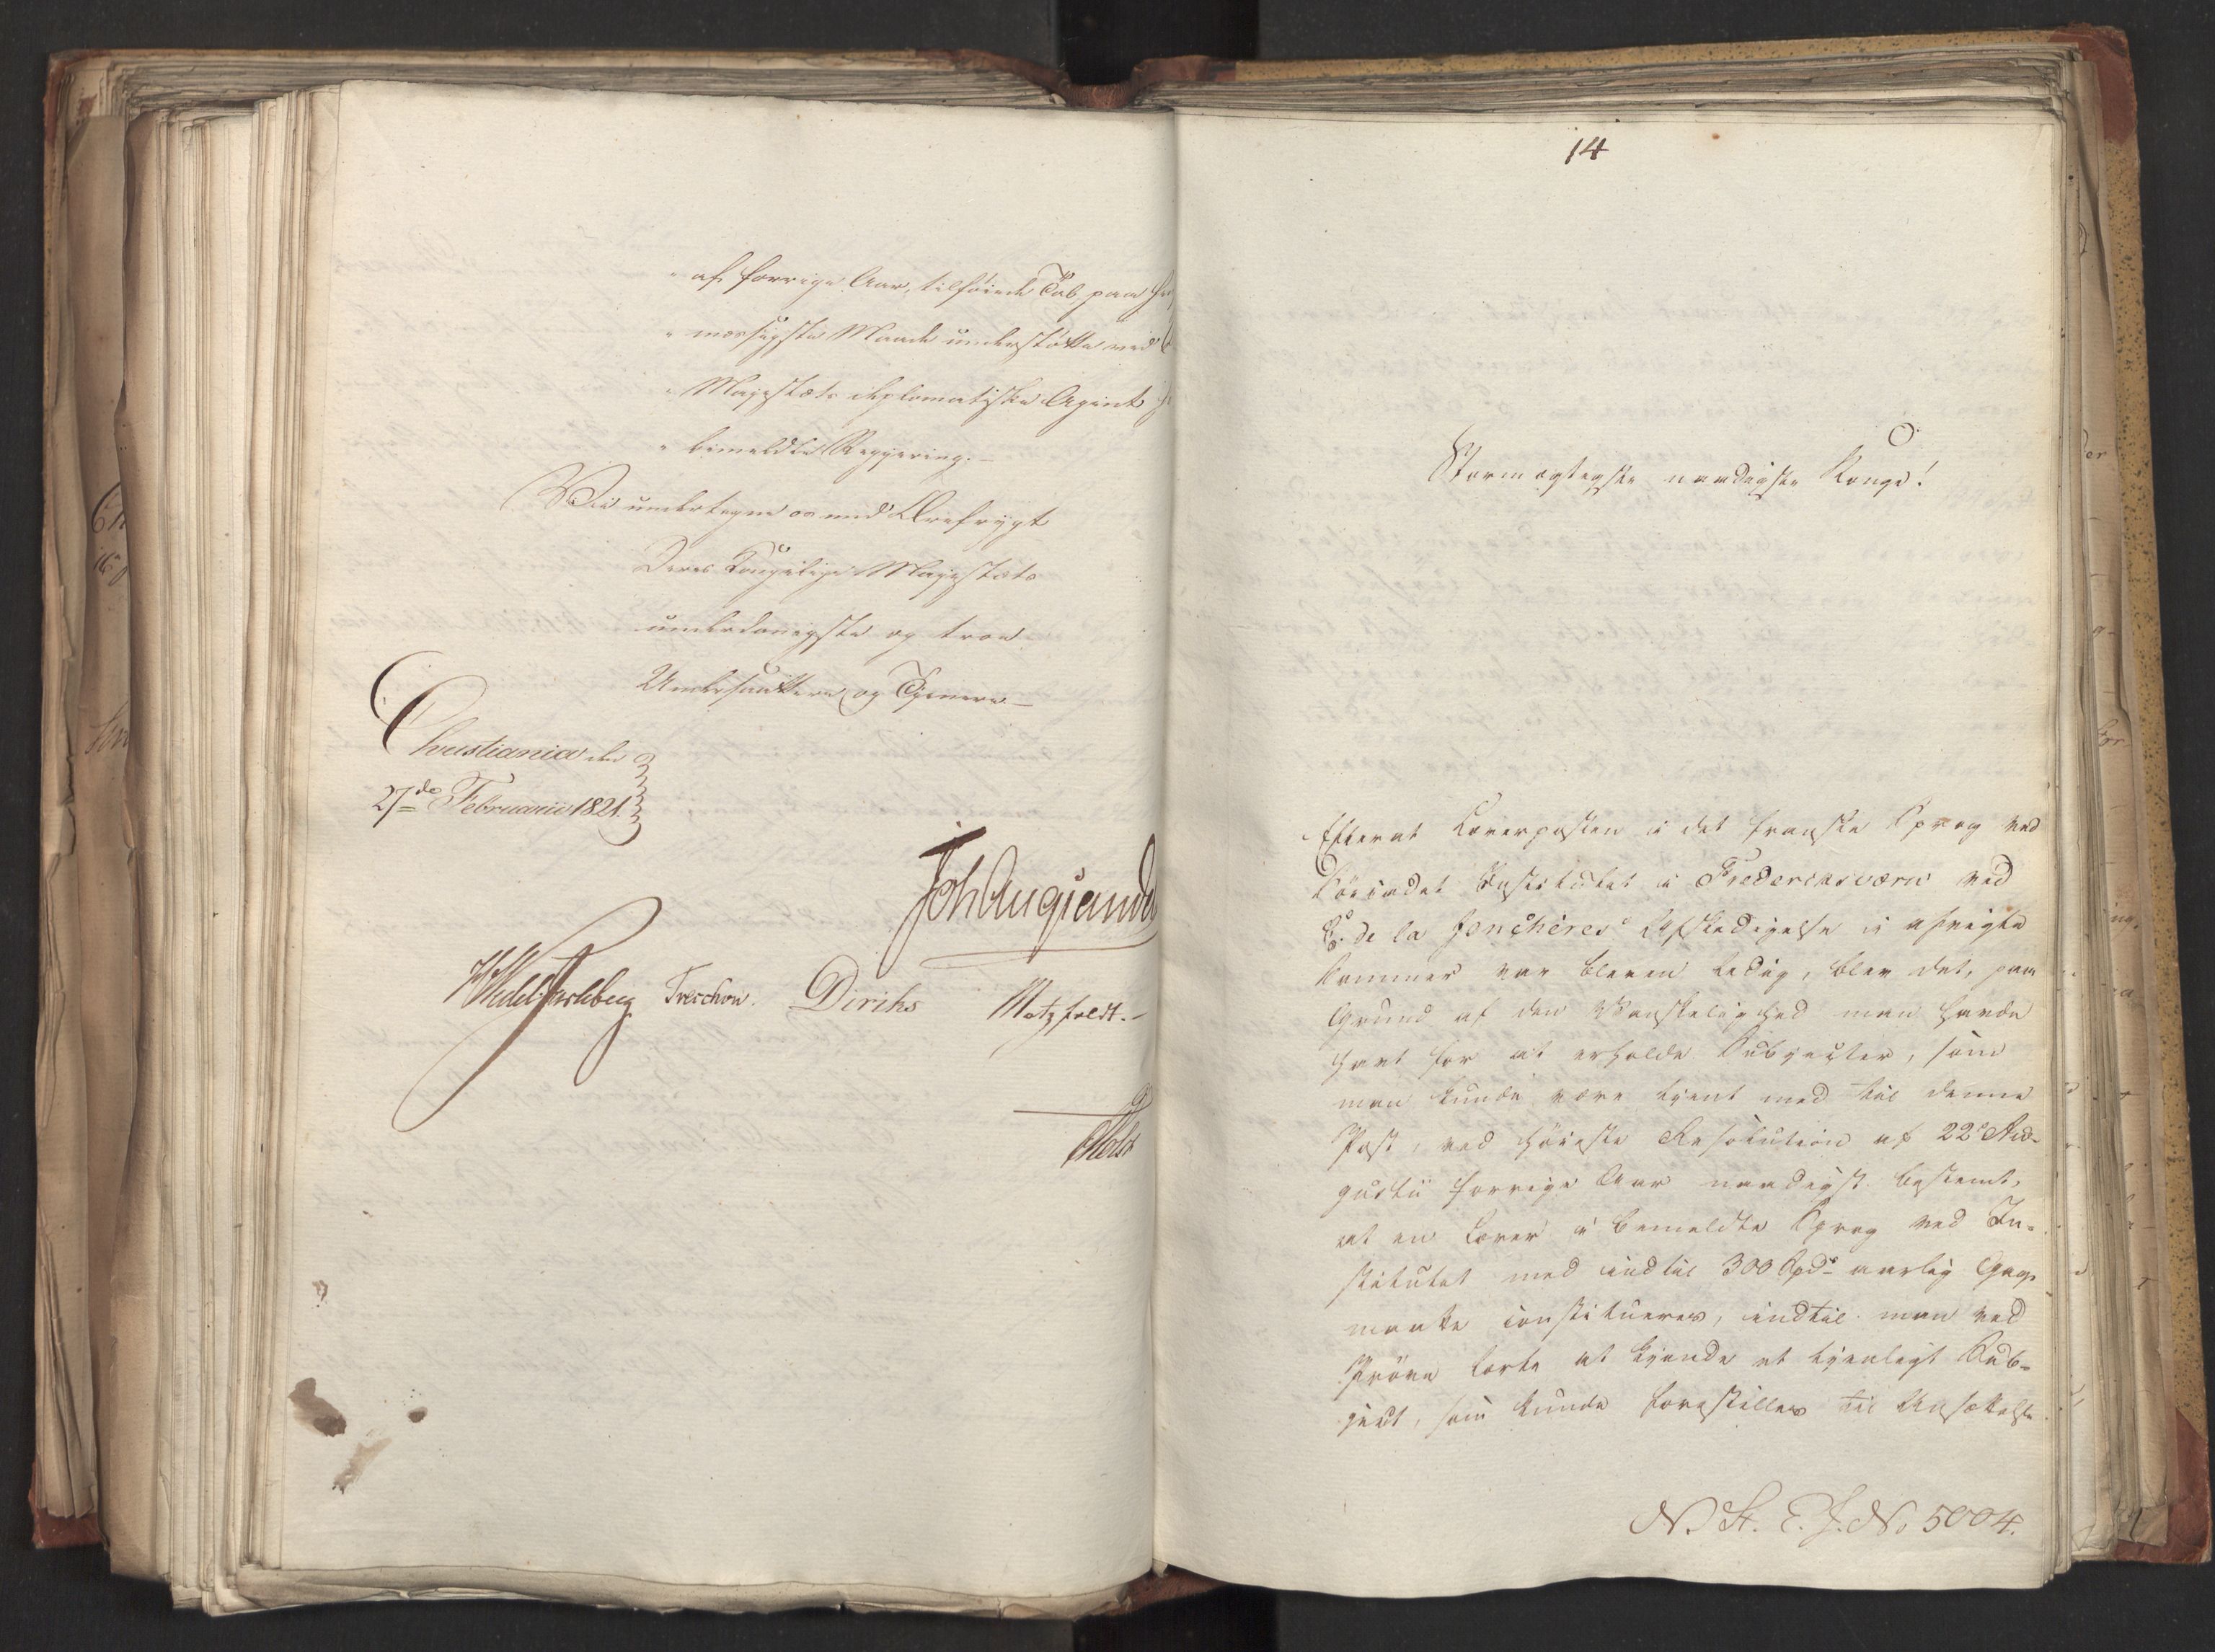 " af forrige Aar, tilføiede Tab, paa
" mæssigste Maade understøtte ved
" Majestæts diplomatiske Agent
" bemeldte Regjering. —
Vi undertegne os med Ærefrygt
Deres Kongelige Majestæts
underdanigste og troe
Undersaattere og Tjenere —
Christiania den
27de Februarii 1821.
Treschow. Diriks Motzfeldt. —
Holst
14
Stormægtigste naadigste Konge!
Efterat Lærerposten i det franske Sprog ved
Søecadet Institutet i Fredericksværn ved
de la Jonchères Afskedigelse i afvigte
Sommer var bleven ledig, blev det, paa
Grund af den Vanskelighed man havde
havt for at erholde Subjecter, som
man kunde være tjent med til denne
Post, ved høieste Resolution af 22de Au-
gustii forrige Aar naadigst bestemt,
at en Lærer i bemeldte Sprog ved In-
stitutet med indtil 300 Spd aarlig Gage
maatte constitueres, indtil man ved
Prøve lærte at kjende et tjenligt Sub-
ject, som kunde forestilles til Ansættelse
N. St. E. J. No 5004.